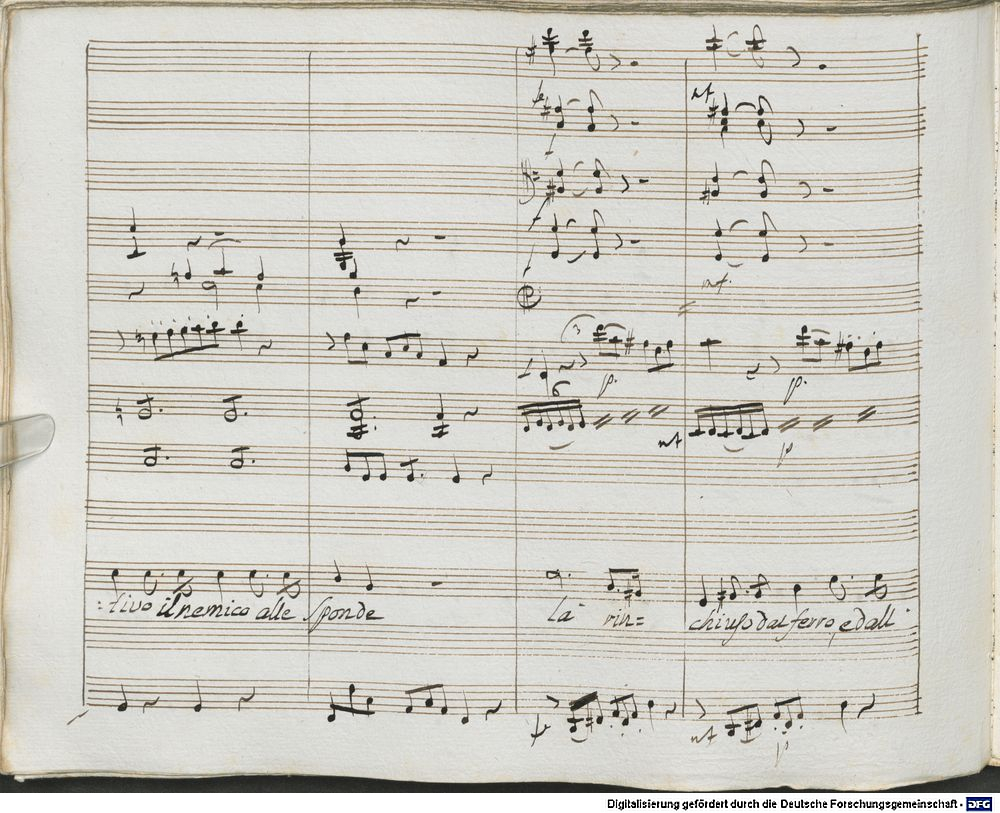 fe
nf
f
f
f
nf.
3
p.
p.
6
nf
p
=tivo il nemico alle sponde là rin= chiuso dal ferro, e dall'
fe
nf
p
Digitalisierung gefördert durch die Deutsche Forschungsgemeinschaft - DFG